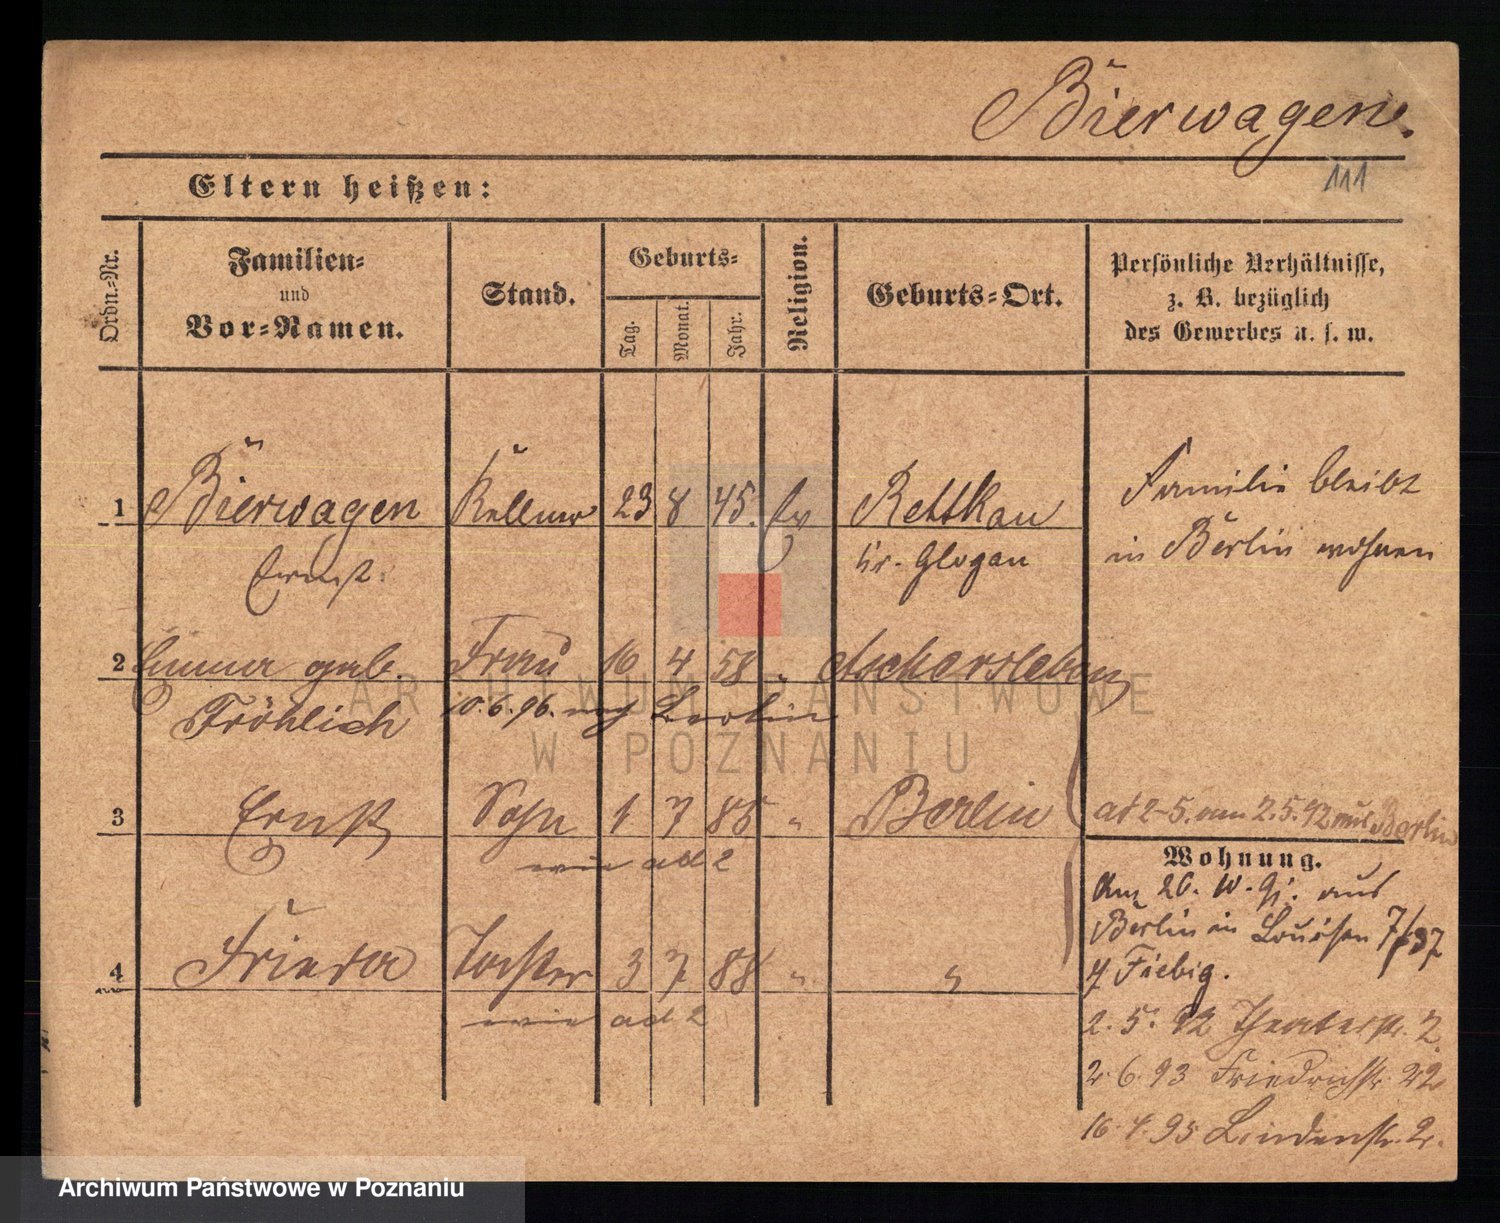 Bierwagen.
111
Eltern heißen:
Ordn.-Nr.
Familien-
und
Vor-Namen.
Stand.
Geburts-
Tag.
Monat.
Jahr.
Religion.
Geburts-Ort.
Persönliche Verhältnisse,
z. B. bezüglich
des Gewerbes u. s. w.
1 Bierwagen Kellner 23 8 45. Ev Rettkau
Ernst. Kr. Glogau
Familie bleibt
in Berlin wohnen
2 Emma geb. Frau 16 4 58 " Aschersleben
Fröhlich 10.6.96. nach Berlin
3 Ernst Sohn 1 7 85 " Berlin
wie ad 2
ad 2-5. am 2.5.92 aus Berlin
4 Frieda Tochter 3 7 88 " "
wie ad 2
Wohnung.
Am 26. 10. 91. aus
Berlin in Louisen 7/37
Fiebig.
2. 5. 92 Theaterstr. 2.
2. 6. 93 Friedrichstr. 22
16. 4. 95 Lindenstr. 2.
ARCHIWUM PAŃSTWOWE
W POZNANIU
Archiwum Państwowe w Poznaniu